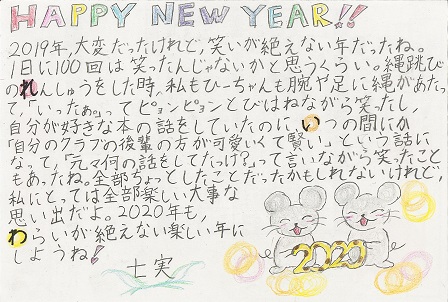 HAPPY NEW YEAR!!
2019年,大変だったけれど,笑いが絶えない年だったね。
1日に100回は笑ったんじゃないかと思うくらい。縄跳び
のれんしゅうをした時,私もひーちゃんも腕や足に縄があたっ
て,「いったぁ。」ってピョンピョンとびはねながら笑ったし,
自分が好きな本の話をしていたのに,いつの間にか
「自分のクラブの後輩の方が可愛いくて賢い」という話に
なって,「元々何の話をしてたっけ?」って言いながら笑ったこと
もあったね。全部ちょっとしたことだったかもしれないけれど,
私にとっては全部楽しい大事な
思い出だよ。2020年も,
わらいが絶えない楽しい年に
しようね!
士実
2020